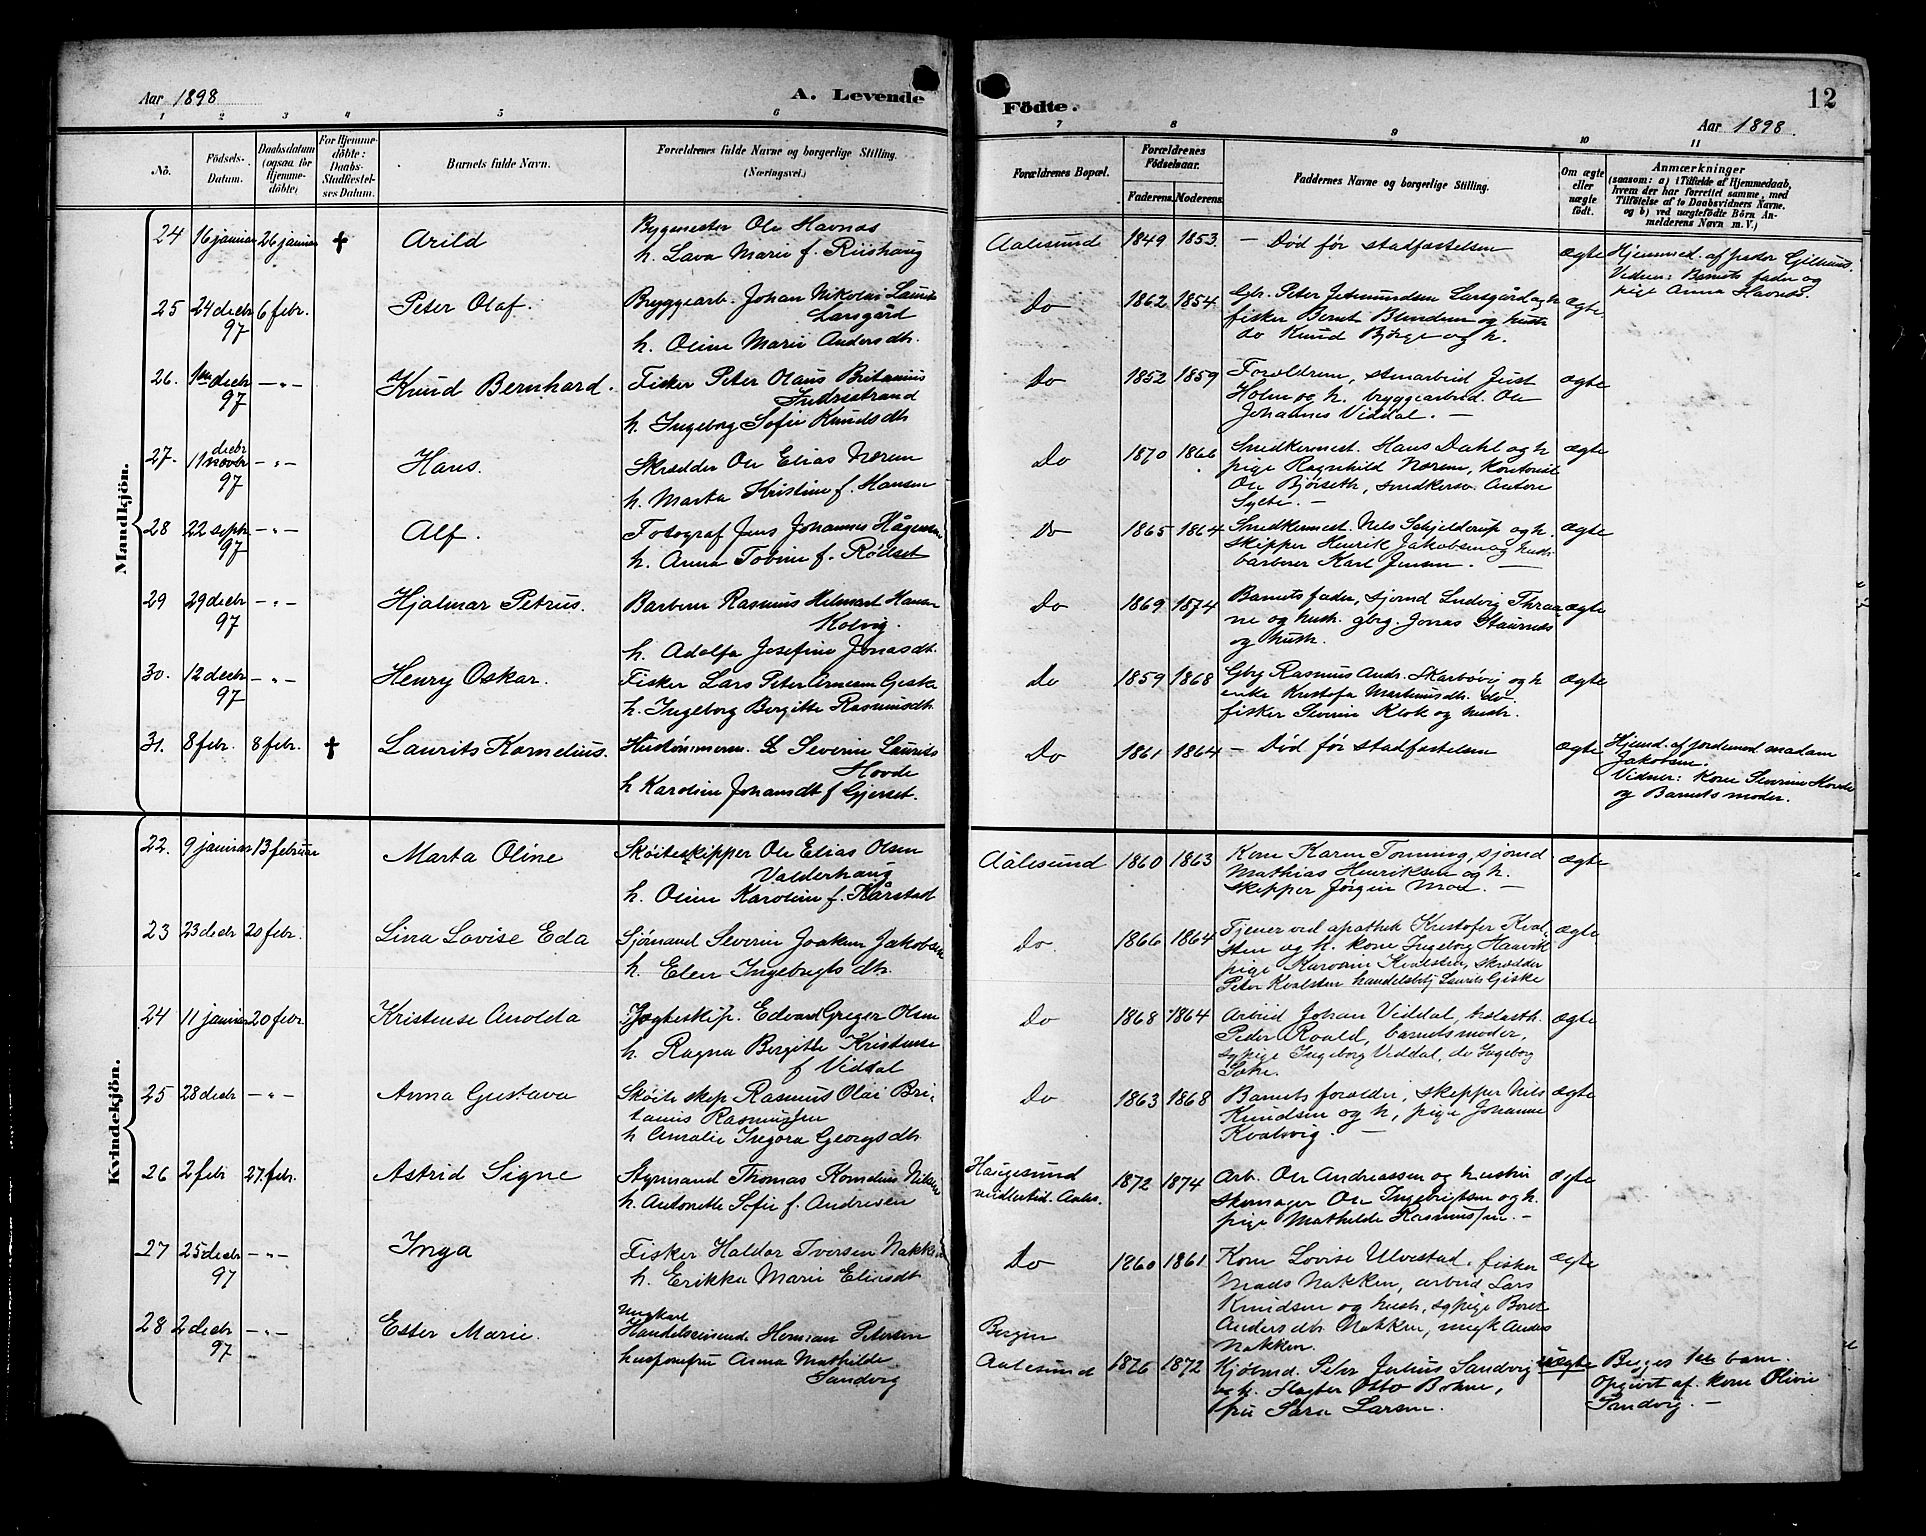 Aar 1898
A. Levende
Födte.
12
Aar 1898.
1 2 3 4 5 6 7 8 9 10 11
No.
Födsels-Datum.
Daabsdatum (ogsaa for Hjemmedöbte)
For Hjemmedöbte: Daabs-Stadfæstelses Datum.
Barnets fulde Navn.
Forældrenes fulde Navne og borgerlige Stilling. (Næringsvei.)
Forældrenes Bopæl.
Forældrenes Födselsaar.
Faderens.
Moderens.
Faddernes Navne og borgerlige Stilling.
Om ægte eller uægte födt.
Anmærkninger
(saasom: a) i Tilfælde af Hjemmedaab,
hvem der har forrettet samme, med
Tilföielse af to Daabsvidners Navne.
og b) ved uægtefödte Börn An-
melderens Navn m. V.)
Mandkjön.
24 16 januar 26 januar † Arild
Bygmester Ole Havnås
h. Lava Marie f. Riishaug
Aalesund 1849 1853. — Død før stadfæstelsen ægte
Hjemmed. af pastor
Vidner: Barnets fader og
pige Anna Havnås.
25 24 decbr 97 6 febr. Peter Olaf.
Bryggearb. Johan Nikolai Laurits
Larsgård
h. Oline Marie Andersdtr.
Do 1862 1854
Gbr. Peter Larsgård og h
fisker Bernt Blindem og hustr
do Knud Bjørge og h.
ægte
26. 1ste decbr 97 —"— Knud Bernhard.
Fisker Peter Olaus Britanius
Indrestrand
h. Ingeborg Sofie Knudsdtr
Do 1852 1859
Forældrene, stenarbeid Just
Holm og h. bryggearbeid. Ole
Johannes Viddal. —
ægte
27. 11 novbr decbr 97 —"— Hans.
Skrædder Ole Elias Nærem
h. Marta Kristine f. Hansen
Do 1870 1866
Snedkermest. Hans Dahl og h
pige Ragnhild Nærem, kontorist
Ole Bjørseth, snedkersv. Antone
Sylte. —
ægte
28 22 septbr 97 —"— Alf.
Fotograf Jens Johannes Hågensen
h. Anna Tobine f. Rødset
Do 1865 1864
Snedkermest. Nils Schjelderup og h.
skipper Henrik Jakobsen og hustr
barberer Karl Jensen. —
ægte
29 29 decbr 97 —"— Hjalmar Petrus.
Barberer Rasmus Helmert Hansen
Kolvig.
h. Adolfa Josefine Jonasdtr.
Do 1869 1874
Barnets fader, sjømd Ludvig Thraa
ne og hustr. gbrg. Jonas Staurnes
og hustr.
ægte
30. 12 decbr 97 —"— Henry Oskar.
Fisker Lars Peter Arnesen Giske
h. Ingeborg Bergitte Rasmusdtr.
do 1859 1868
Gbrg Rasmus Andr. Skarbøvig og h
enke Kristofa Martinusdtr. do.
fisker Severin Klok og hustr.
ægte
31. 8 febr. 8 febr. † Laurits Kornelius.
Hustømmerm. Severin Laurits
Hovde
h Karoline Johansdt f Gjerset.
Do 1861 1864 — Død før stadfæstelsen ægte
Hjemd. af jordemod madam
Jakobsen.
Vidner: kone Severine Hovde
og Barnets moder.
Kvindekjön.
22. 9 januar 13 februar Marta Oline
Skøiteskipper Ole Elias Olsen
Valderhaug
h. Oline Karoline f. Kårstad
Aalesund 1860 1863
Kone Karen Tonning, sjømd
Mathias Henriksen og h.
skipper Jørgen Moe. —
ægte
23 23 decbr 20 febr. Lina Lovise Eda
Sjømand Severin Joakim Jakobsen
h. Elen Ingebrigtsdtr.
Do. 1866 1864
Tjener ved apothek Kristofer Kval
sten og h. kone Ingeborg Haavik
pige Karoline Kvalsten, skrædder
Peter Kvalsten handelsbetj Laurits Giske
ægte
24 11 januar 20 febr Kristense Anolda
Jagteskip. Edvard Greger Olsen
h. Ragna Bergitte Kristense
f Viddal
Do 1868 1864
Arbeid Johan Viddal,
Peder Roald, barnets moder,
sypige Ingeborg Viddal, do Ingeborg
Sætre.
ægte
25 28 decbr —"— Anna Gustava
Skøite skip Rasmus Olai Bri-
tanius Rasmussen
h Amalie Ingora Georgsdtr.
Do 1863 1868
Barnets forælder, skipper Nils
Knudsen og h, pige Johanne
Kvalsvig. —
ægte
26 2 febr 27. febr. Astrid Signe
Styrmand Thomas Kornelius Nilsen
h. Antonette Sofie f. Andresen
Haugesund
midlertid. Aales. 1872 1874
Arb. Ole Andreassen og hustru
skomager Ole Ingebrigtsen og h.
pige Mathilde Rasmussen. —
ægte
27 25 decbr 97 —"— Inga
Fisker Haldor Iversen Nakken
h. Erikka Marie Eliasdt
Do 1860 1861
Kone Lovise Ulvestad. fisker
Mads Nakken, arbeid Lars
Knudsen og hustr, sypige Beret
Andersdtr. Nakken, ungk Anders
Nakken.
ægte
28 2 decbr 97 —"— Ester Marie.
Ungkarl
Handelsreisende Herman Petersen
husjomfru Anna Mathilde
Sandvig
Bergen
Aalesund 1876 1872
Kjøbmd. Peter Julius Sandvig
og h. Slagter Otto Bohne,
pie Sara Larsen.
uægte
Begges 1ste barn.
Opgivet af kone Olivie
Sandvig. —